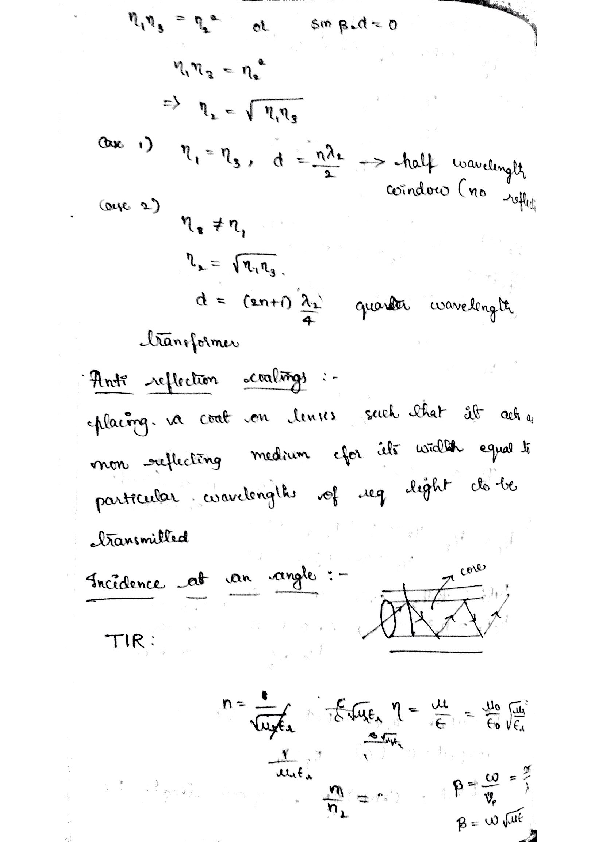 η₁η₃ = η₂² or sin β₂d = 0
η₁η₃ = η₂²
⇒ η₂ = √η₁η₃
Case 1) η₁ = η₃, d = nλ₂/2 → half wavelength
window (no reflec
Case 2)
η₃ ≠ η₁
η₂ = √η₁η₃.
d = (2n+1) λ₂/4 quarter wavelength
transformer
Anti reflection coatings :-
placing a coat on lenses such that it act a
non reflecting medium for its width equal to
particular wavelengths of req light to be
transmitted
Incidence at an angle :-
core
TIR :
n = √μrεr η = μ/ε = μ0/ε0 √μr/εr
β = ω/Vp =
n₂ =
β = ω√με